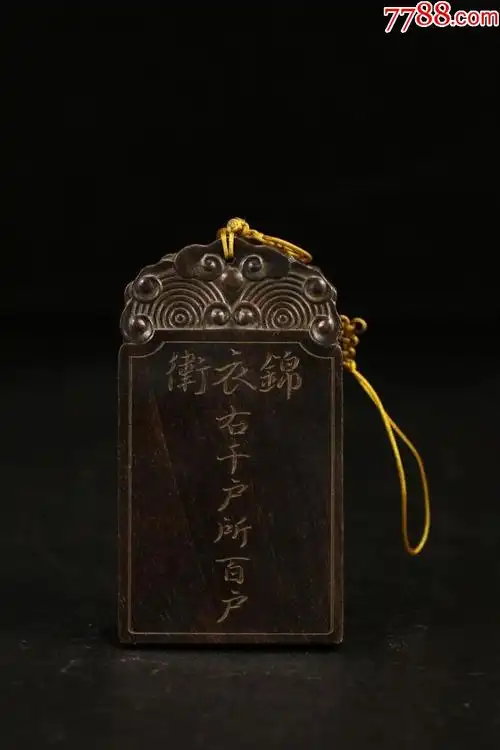 7788.com
錦衣衛
右千户所百户